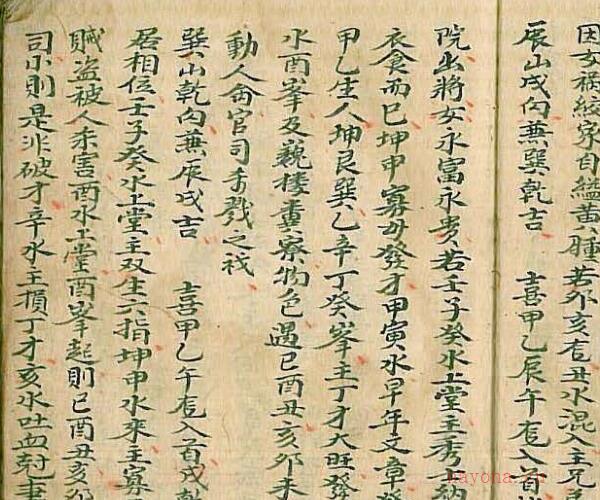 因女禍絞家自縊黃八腫若夘亥㐌丑水混入主兄
辰山戌向兼巽乾吉　喜甲乙辰午㐌入首
院出將女永富永貴若壬子癸水上堂主秀
衣食而已坤申寡母發才甲寅水早年文章
甲乙生人坤艮巽乙辛丁癸峯主丁才大旺發
水酉峯及観楼糞寮物色遇巳酉丑亥夘未
動人命官司杀戮之祸
巽山乾向兼辰戌吉　喜甲乙午㐌入首戌
居相位壬子癸水上堂主双生六指坤申水來主寡
賊盗被人杀害酉水上堂酉峯起則巳酉丑亥夘
司小則是非破才辛水主損丁才亥水吐血
nayona.ru